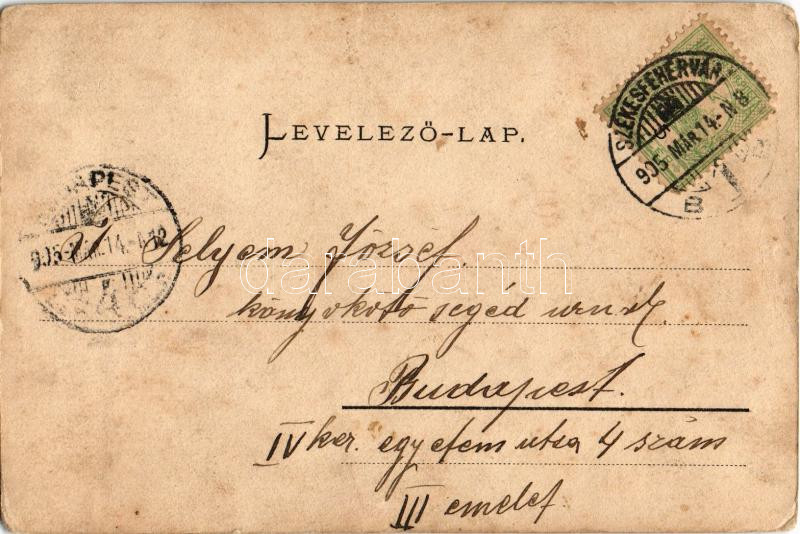 LEVELEZŐ-LAP.
SZÉKESFEHÉRVÁR
905 MÁR.14-N.8
B
BUDAPEST
905 MÁR.14-N.12
Selyem József.
könyvkötő segéd urnak.
Budapest.
IV ker. egyetem utsa 4 szám
III emelet
darabanth